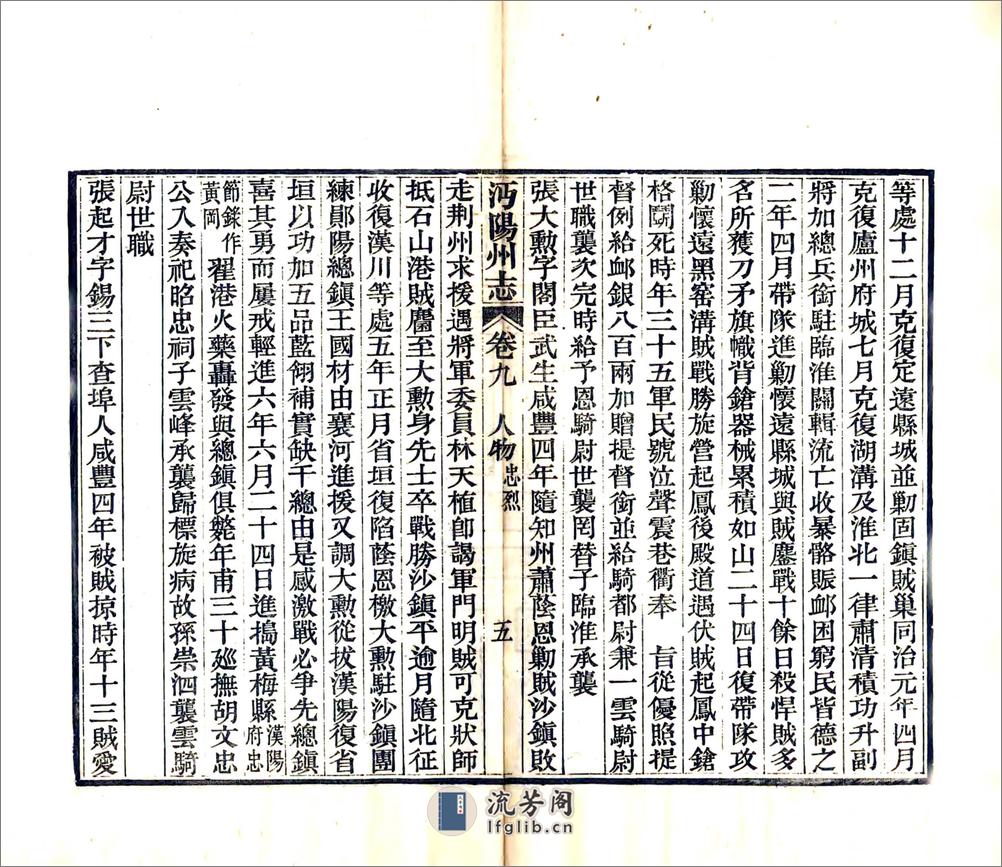 等處十二月克復定遠縣城並勦固鎮賊巢同治元年四月
克復廬州府城七月克復湖溝及淮北一律肅清積功升副
將加總兵銜駐臨淮關輯流亡收暴骼賑邮困窮民皆德之
二年四月帶隊進勦懷遠縣城與賊鏖戰十餘日殺悍賊多
名所獲刀矛旗幟背鎗器械累積如山二十四日復帶隊攻
勦懷遠黑窑溝賊戰勝旋營起鳳後殿道遇伏賊起鳳中鎗
格鬬死時年三十五軍民號泣聲震巷衢奉 旨從優照提
督例給邮銀八百兩加贈提督銜並給騎都尉兼一雲騎尉
世職襲次完時給予恩騎尉世襲罔替子臨淮承襲
張大勲字閣臣武生咸豐四年隨知州蕭蔭恩勦賊沙鎮敗
沔陽州志 卷九 人物 忠烈 五
走荆州求援遇將軍委員林天植卽謁軍門明賊可克狀師
抵石山港賊麕至大勲身先士卒戰勝沙鎮平逾月隨北征
收復漢川等處五年正月省垣復陷蔭恩檄大勲駐沙鎮團
練鄖陽總鎮王國材由襄河進援又調大勲從拔漢陽復省
垣以功加五品藍翎補實缺千總由是感激戰必争先總鎮
喜其勇而屢戒輕進六年六月二十四日進搗黃梅縣漢陽府忠
節錄作黃岡翟港火藥轟發與總鎮俱斃年甫三十廵撫胡文忠
公入奏祀昭忠祠子雲峰承襲歸標旋病故孫崇泗襲雲騎
尉世職
張起才字錫三下查埠人咸豐四年被賊掠時年十三賊愛
流芳阁
lfglib.cn